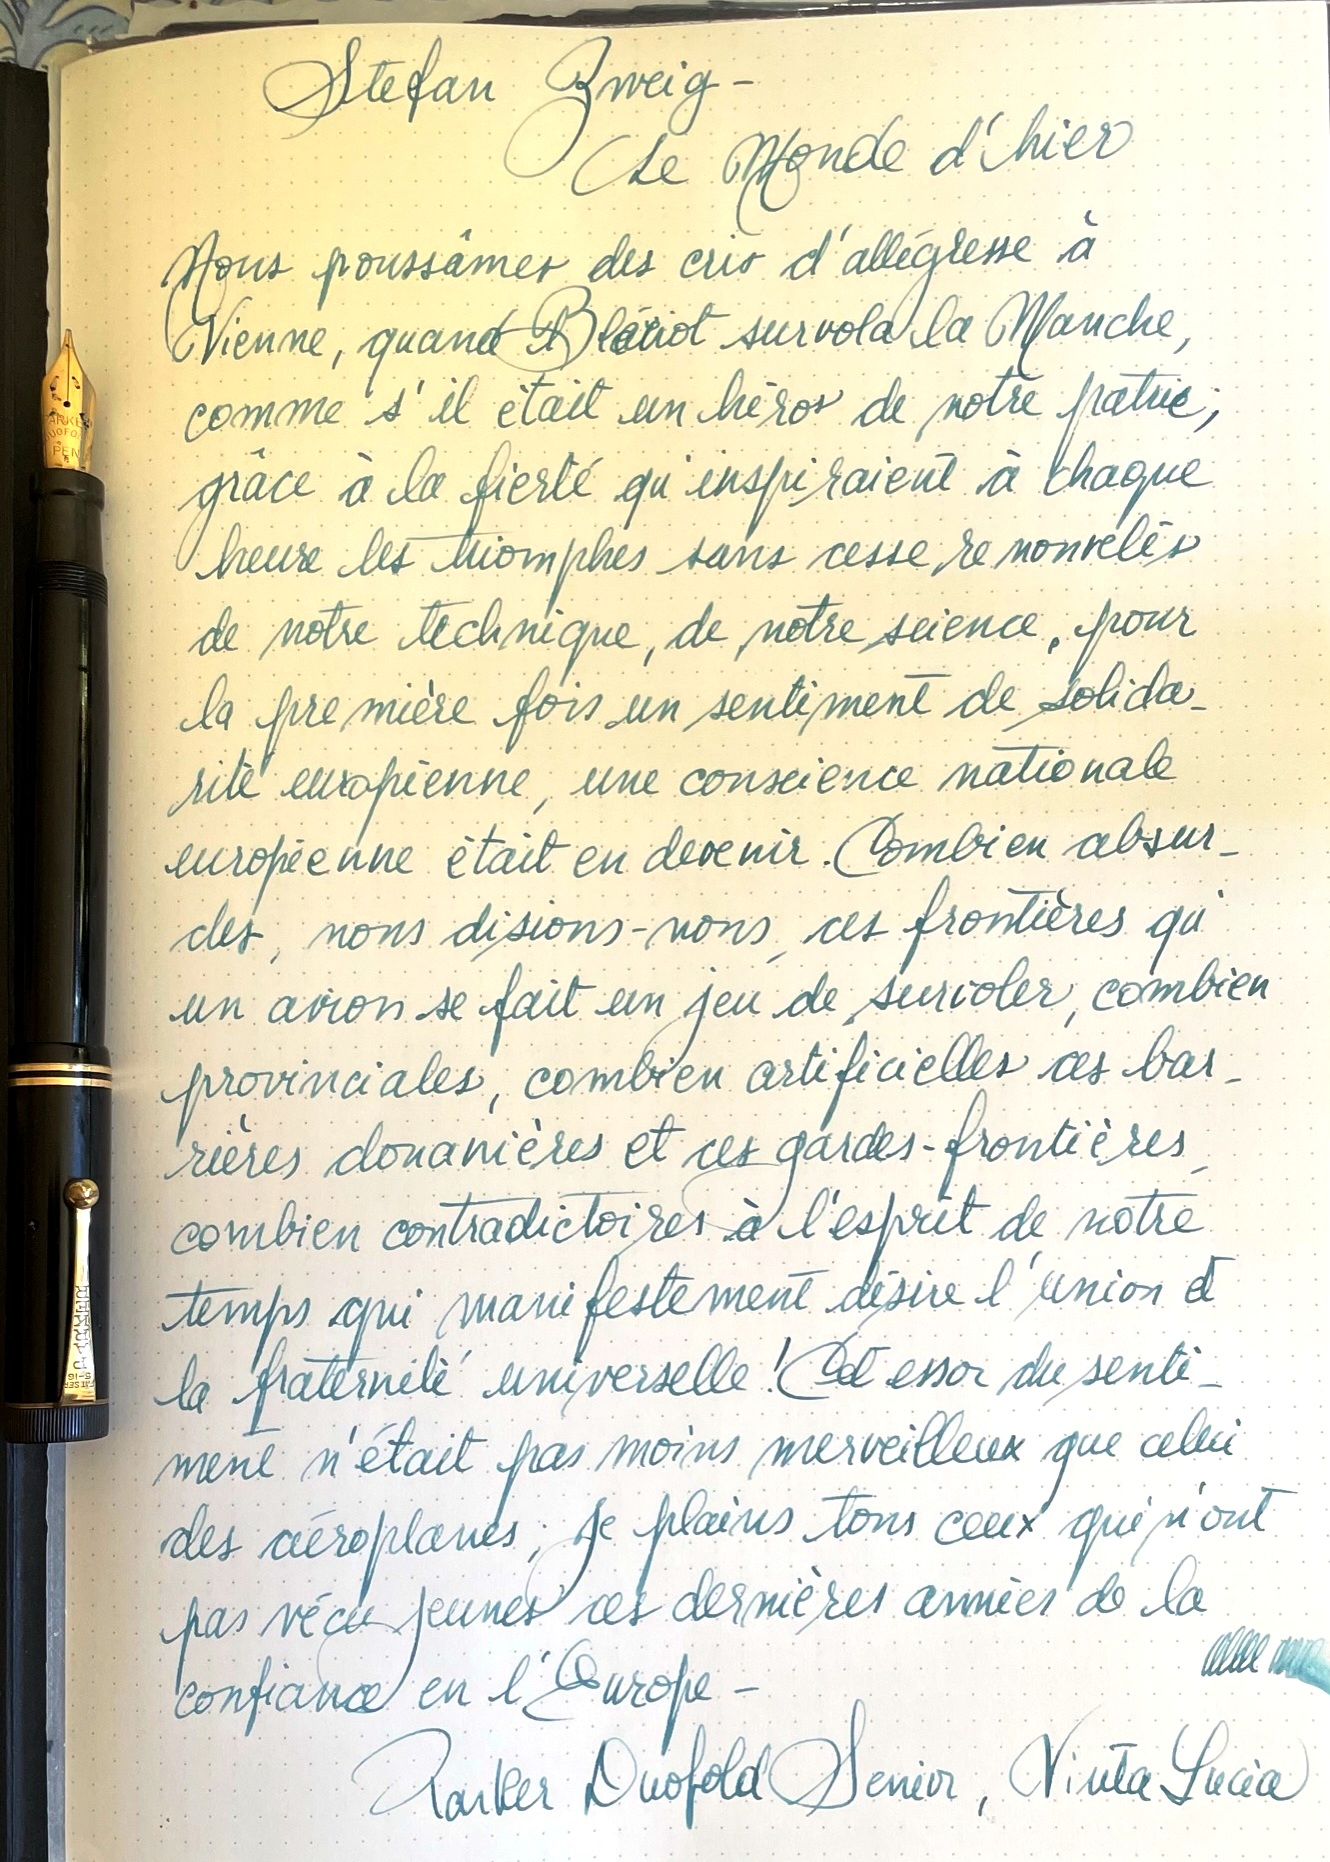 Stefan Zweig -
Le Monde d'hier
Nous poussâmes des cris d'allégresse à
Vienne, quand Blériot survola la Manche,
comme s'il était un héros de notre patrie;
grâce à la fierté qu'inspiraient à chaque
heure les triomphes sans cesse renouvelés
de notre technique, de notre science, pour
la première fois un sentiment de solida-
rité européenne, une conscience nationale
européenne était en devenir. Combien absur-
des, nous disions-nous, ces frontières qu'
un avion se fait un jeu de survoler, combien
provinciales, combien artificielles ces bar-
rières douanières et ces gardes-frontières,
combien contradictoires à l'esprit de notre
temps qui manifestement désire l'union et
la fraternité universelle! Cet essor du senti-
ment n'était pas moins merveilleux que celui
des aéroplanes; je plains tous ceux qui n'ont
pas vécu jeunes ces dernières années de la
confiance en l'Europe -
Parker Duofold Senior, Vinta Lucia
PARKER
DUOFOLD
PEN
PARKER